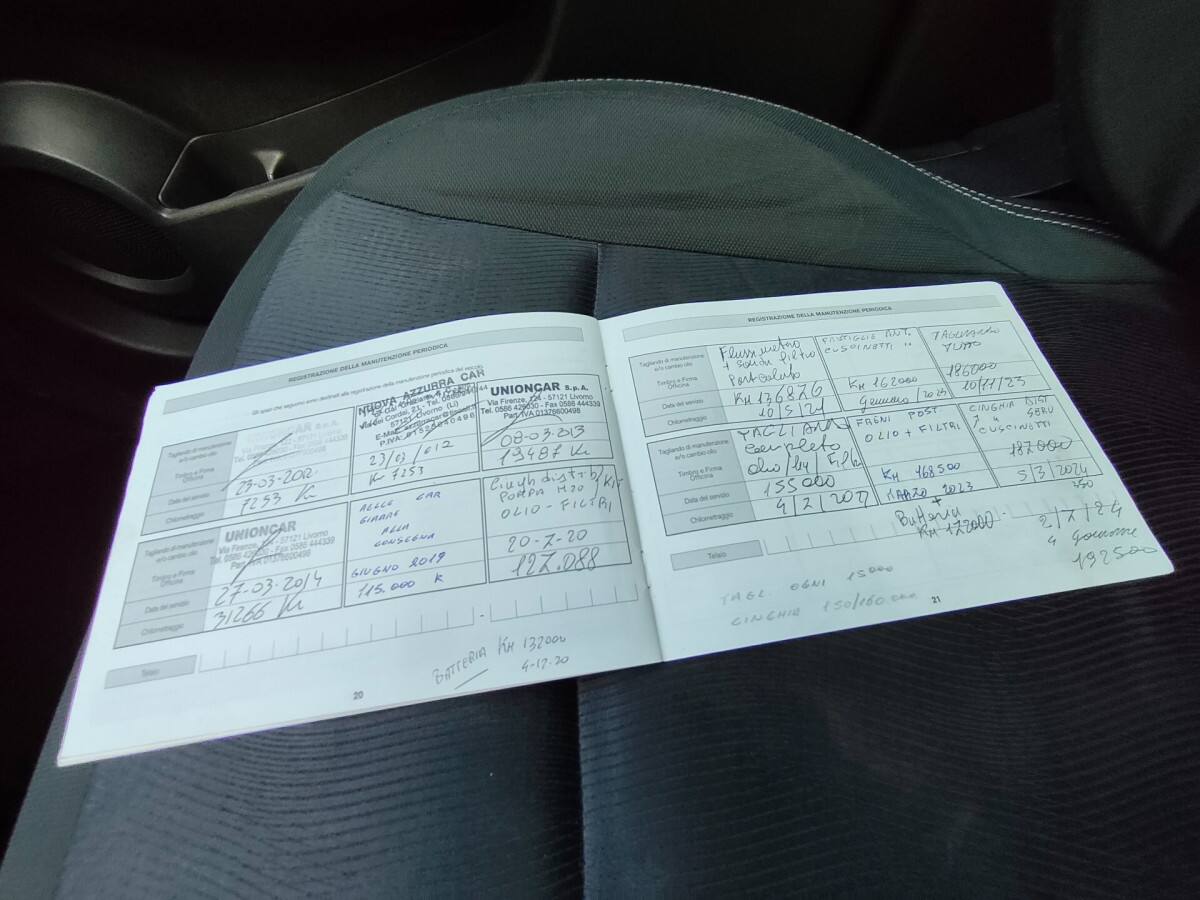 REGISTRAZIONE DELLA MANUTENZIONE PERIODICA
Gli spazi che seguono sono destinati alla registrazione della manutenzione periodica del veicolo
Tagliando di manutenzione
e/o cambio olio
Timbro e Firma
Officina
Data del servizio
Chilometraggio
23-03-2012
7253 Km
NUOVA AZZURRA CAR
57121 Livorno (LI)
23/03/012
K 7253
UNIONCAR S.p.A.
Via Firenze, 124 - 57121 Livorno
Tel. 0586 426030 - Fax 0586 444339
Part. IVA 01376600498
08-03-2013
19487 Km
Tagliando di manutenzione
e/o cambio olio
Timbro e Firma
Officina
Data del servizio
Chilometraggio
UNIONCAR
27-03-2014
31266 Km
AZZURRA CAR
ALLA
CONSEGNA
GIUGNO 2019
115.000 K
Cingh distrib/KIT
POMPA H2O
OLIO - FILTRI
20-7-20
127.088
Telaio
BATTERIA KM 132000
4-12-20
20
REGISTRAZIONE DELLA MANUTENZIONE PERIODICA
Tagliando di manutenzione
e/o cambio olio
Timbro e Firma
Officina
Data del servizio
Chilometraggio
Flussimetro
KM 136876
10/5/21
PASTIGLIE ANT.
CUSCINETTI "
KM 162000
TAGLIANDO
186000
10/11/23
Tagliando di manutenzione
e/o cambio olio
Timbro e Firma
Officina
Data del servizio
Chilometraggio
TAGLIANDO
completo
155000
FRENI POST
OLIO + FILTRI
KM 168500
MARZO 2023
CINGHIA DIST
CUSCINETTI
187000
5/3/2024
+
Batteria
KM 172000
Telaio
2/7/24
4 gomme
192500
TAGL. OGNI 15000
CINGHIA 150/160.000
21